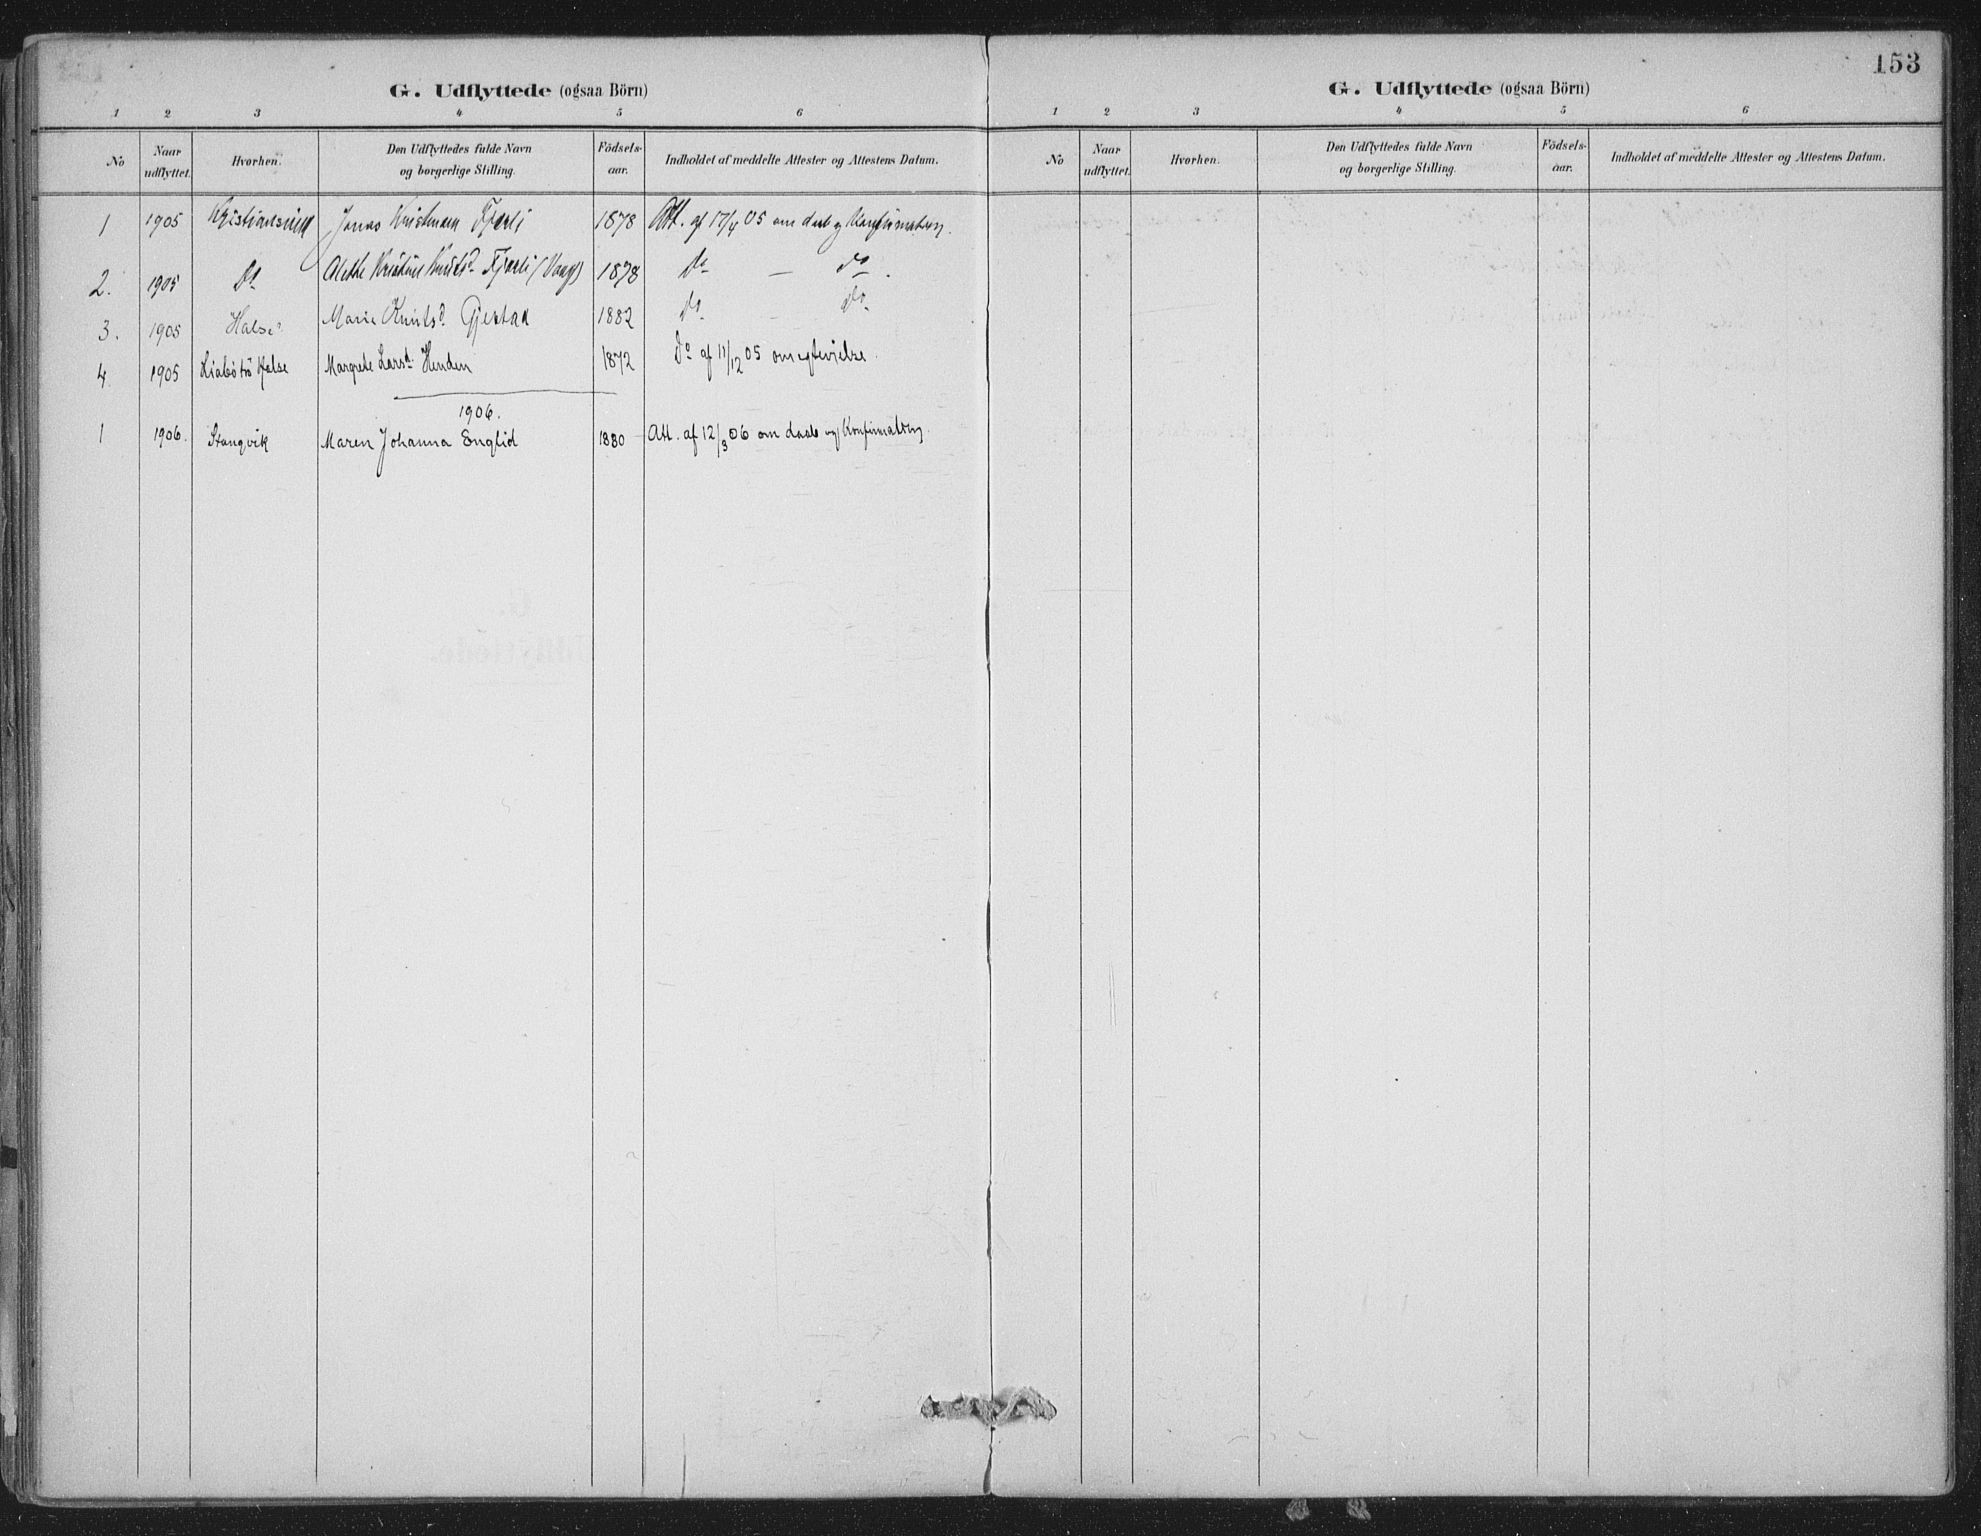 153
G. Udflyttede (ogsaa Börn)
1 2 3 4 5 6
No Naar udflyttet. Hvorhen. Den Udflyttedes fulde Navn og borgerlige Stilling. Födsels-aar. Indholdet af meddelte Attester og Attestens Datum.
1 1905 Kristianssund Jonas Kristensen Fjærli 1878 Att. af 17/4 05 om daab og Konfirmation.
2. 1905 Do Alette Kristine Knutsd. Fjærli (Vaag) 1878 Do — do.
3. 1905 Halse Marie Knutsd. Gjestad 1882 Do — do.
4. 1905 Liabø Halse Margrete Larsd. Henden 1872 Do af 11/12 05 om egtevielse.
1906.
1 1906. Stangvik Maren Johanna Englid 1880 Att. af 12/3 06 om daab og Konfirmation.
G. Udflyttede (ogsaa Börn)
1 2 3 4 5 6
No Naar udflyttet. Hvorhen. Den Udflyttedes fulde Navn og borgerlige Stilling. Födsels-aar. Indholdet af meddelte Attester og Attestens Datum.